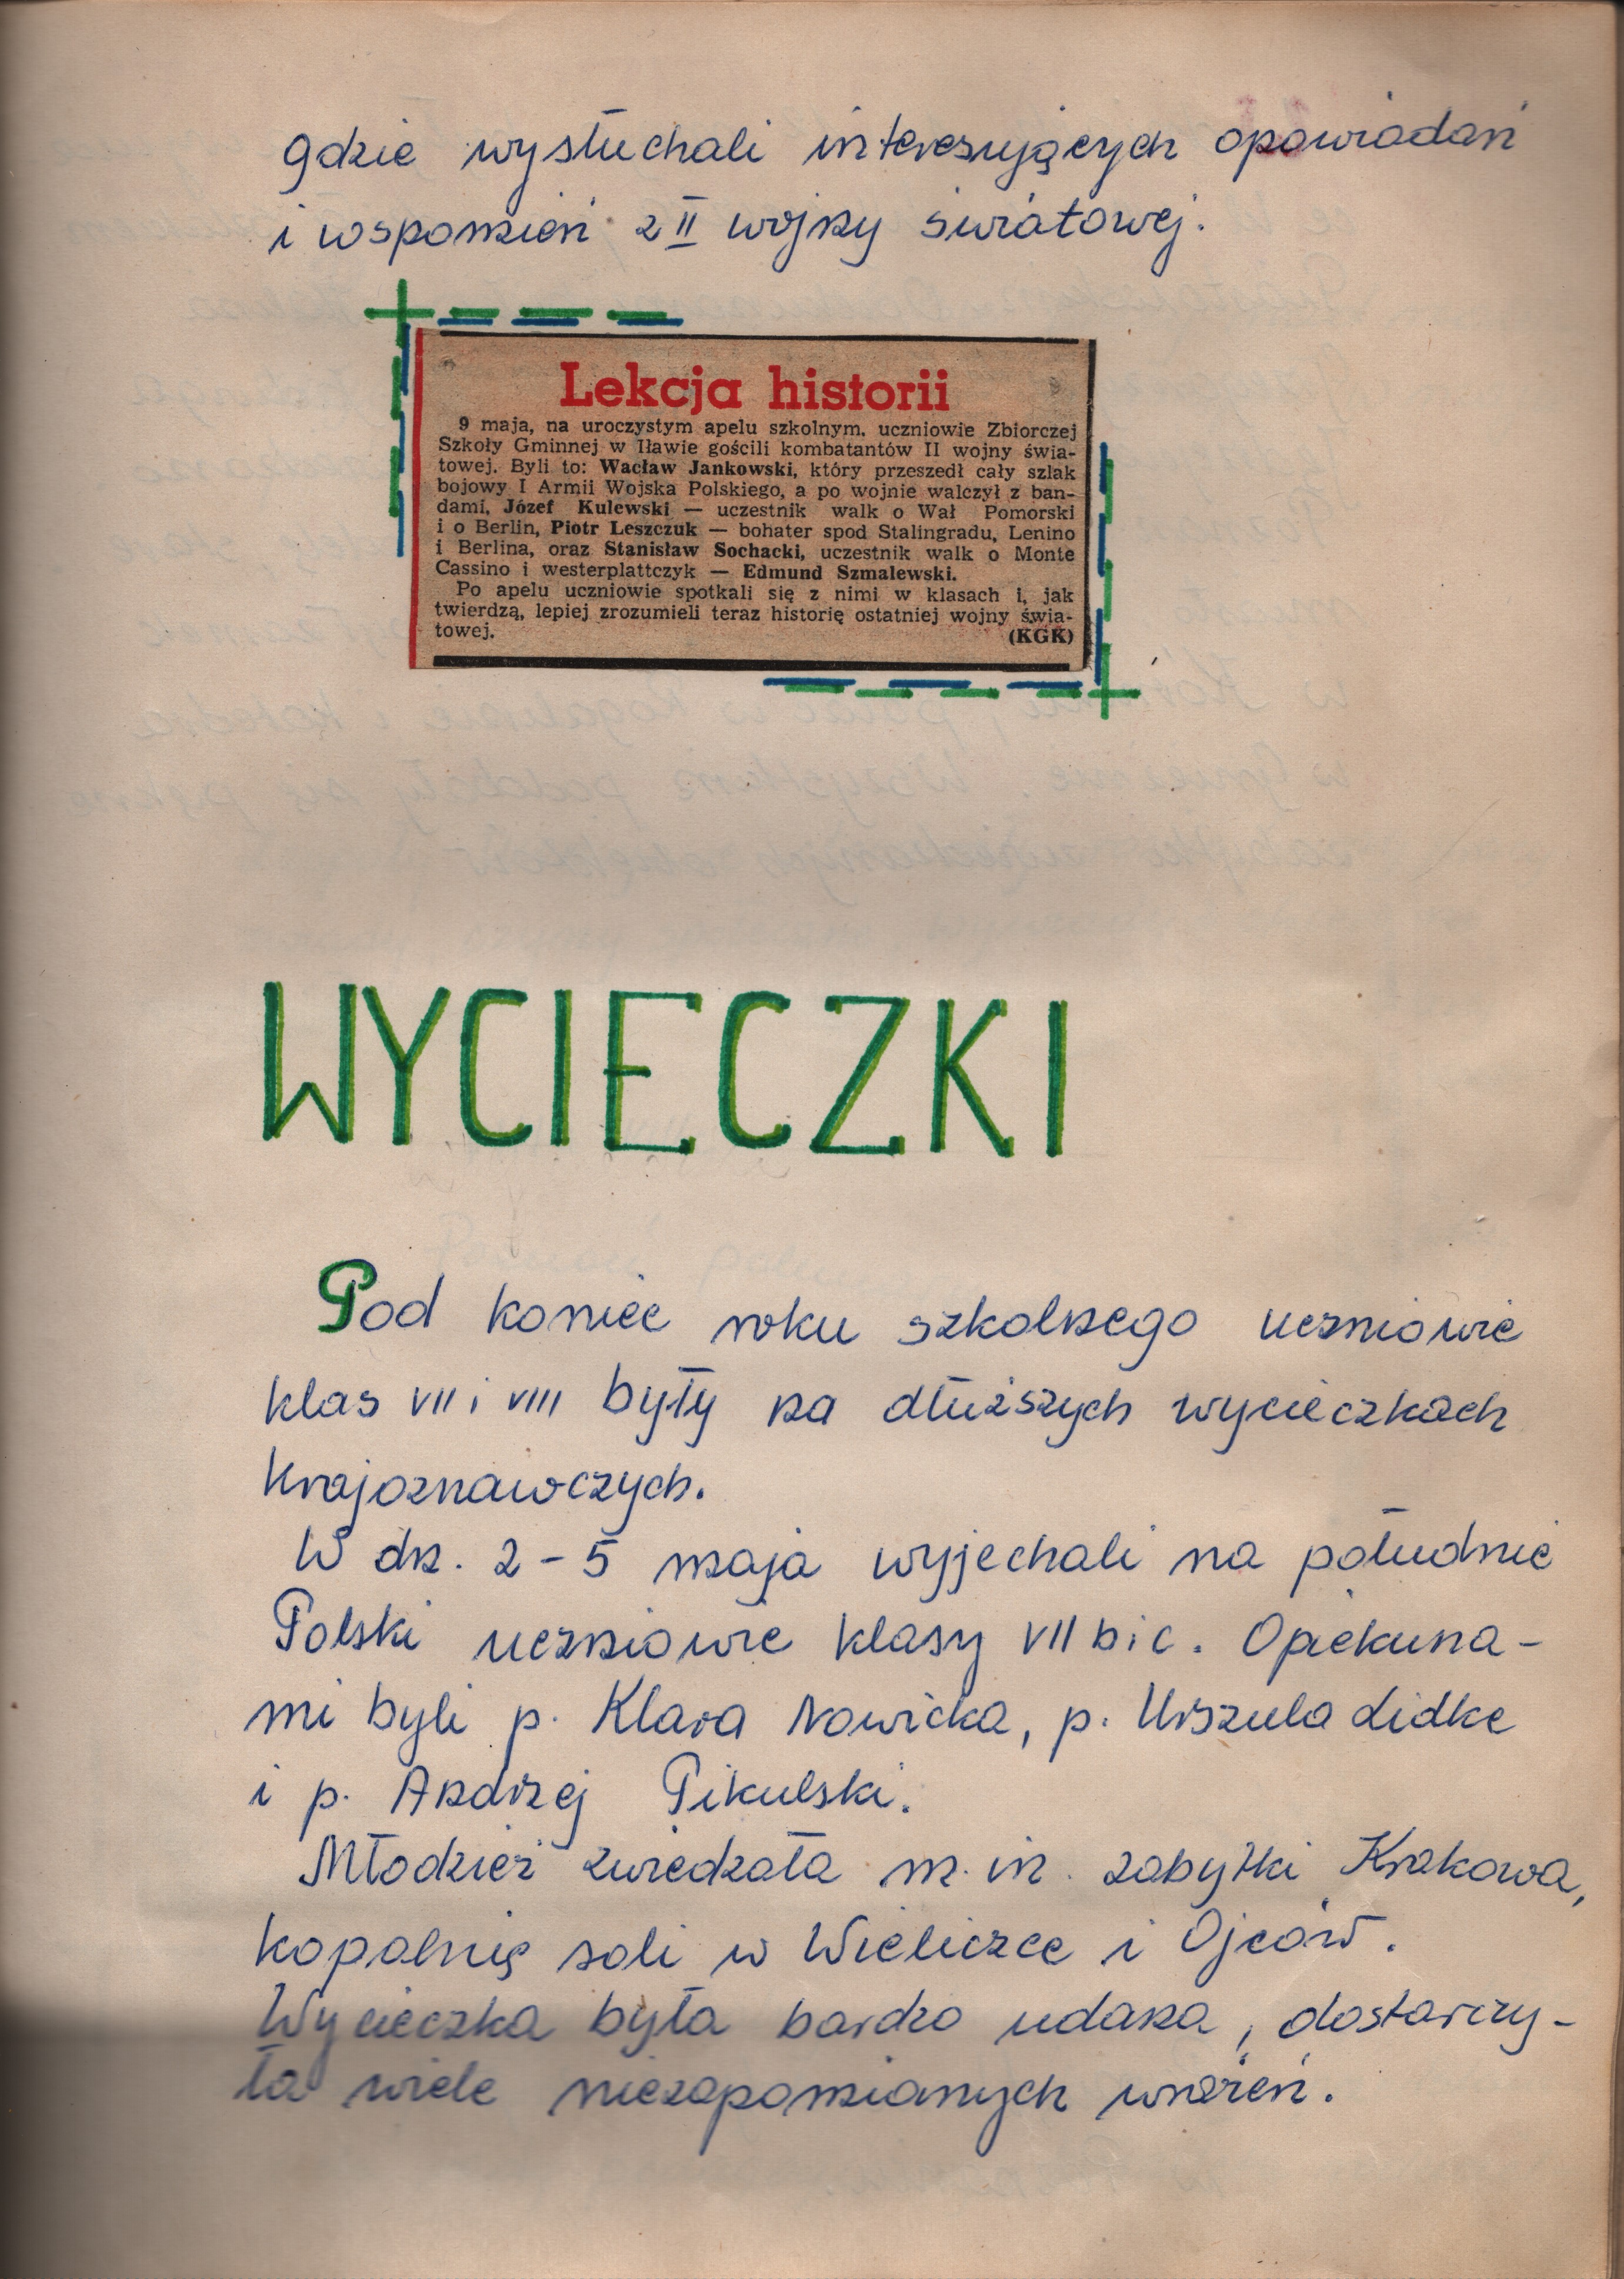 gdzie wysłuchali interesujących opowiadań
i wspomnień z II wojny światowej.
Lekcja historii
9 maja, na uroczystym apelu szkolnym, uczniowie Zbiorczej
Szkoły Gminnej w Iławie gościli kombatantów II wojny świa-
towej. Byli to: Wacław Jankowski, który przeszedł cały szlak
bojowy I Armii Wojska Polskiego, a po wojnie walczył z ban-
dami, Józef Kulewski — uczestnik walk o Wał Pomorski
i o Berlin, Piotr Leszczuk — bohater spod Stalingradu, Lenino
i Berlina, oraz Stanisław Sochacki, uczestnik walk o Monte
Cassino i westerplattczyk — Edmund Szmalewski.
Po apelu uczniowie spotkali się z nimi w klasach i, jak
twierdzą, lepiej zrozumieli teraz historię ostatniej wojny świa-
towej. (KGK)
WYCIECZKI
Pod koniec roku szkolnego uczniowie
klas VII i VIII były na dłuższych wycieczkach
krajoznawczych.
W dn. 2-5 maja wyjechali na południe
Polski uczniowie klasy VII b i c. Opiekuna-
mi byli p. Klara Nowicka, p. Urszula Lidke
i p. Andrzej Pikulski.
Młodzież zwiedzała m.in. zabytki Krakowa,
kopalnię soli w Wieliczce i Ojców.
Wycieczka była bardzo udana, dostarczy-
ła wiele niezapomnianych wrażeń.